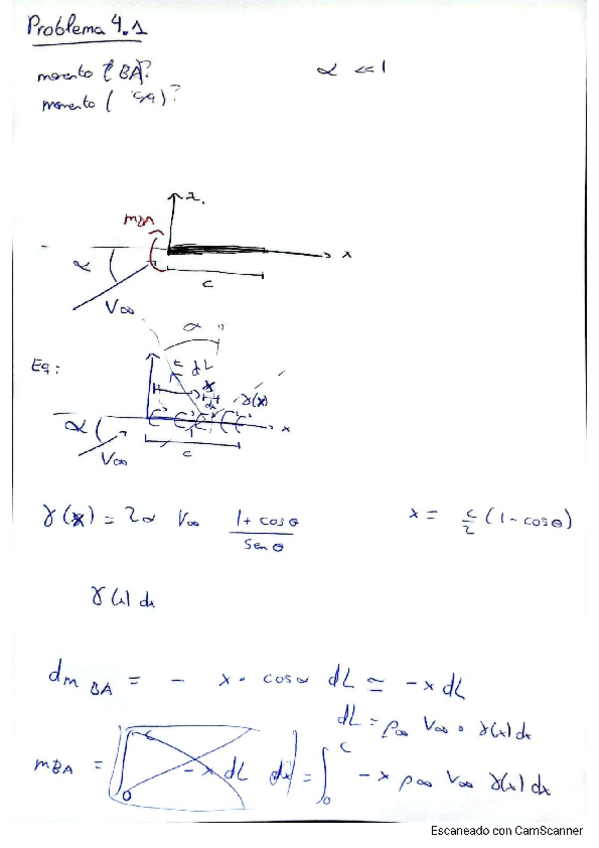 Problema 4.1
momento (BA)?
α << 1
momento ( c/4)?
z
mBA
x
α
c
V∞
α
Eq:
dL
x
dx
γ(x)
α
x
V∞
c
γ(x) = 2α V∞ (1 + cosθ)/(sen θ)
x = c/2 (1 - cosθ)
γ(x) dx
dm BA = - x · cosα dL ≃ -x dL
dL = ρ∞ V∞ · γ(x) dx
mBA = ∫₀ᶜ -x dL dx = ∫₀ᶜ -x ρ∞ V∞ γ(x) dx
Escaneado con CamScanner